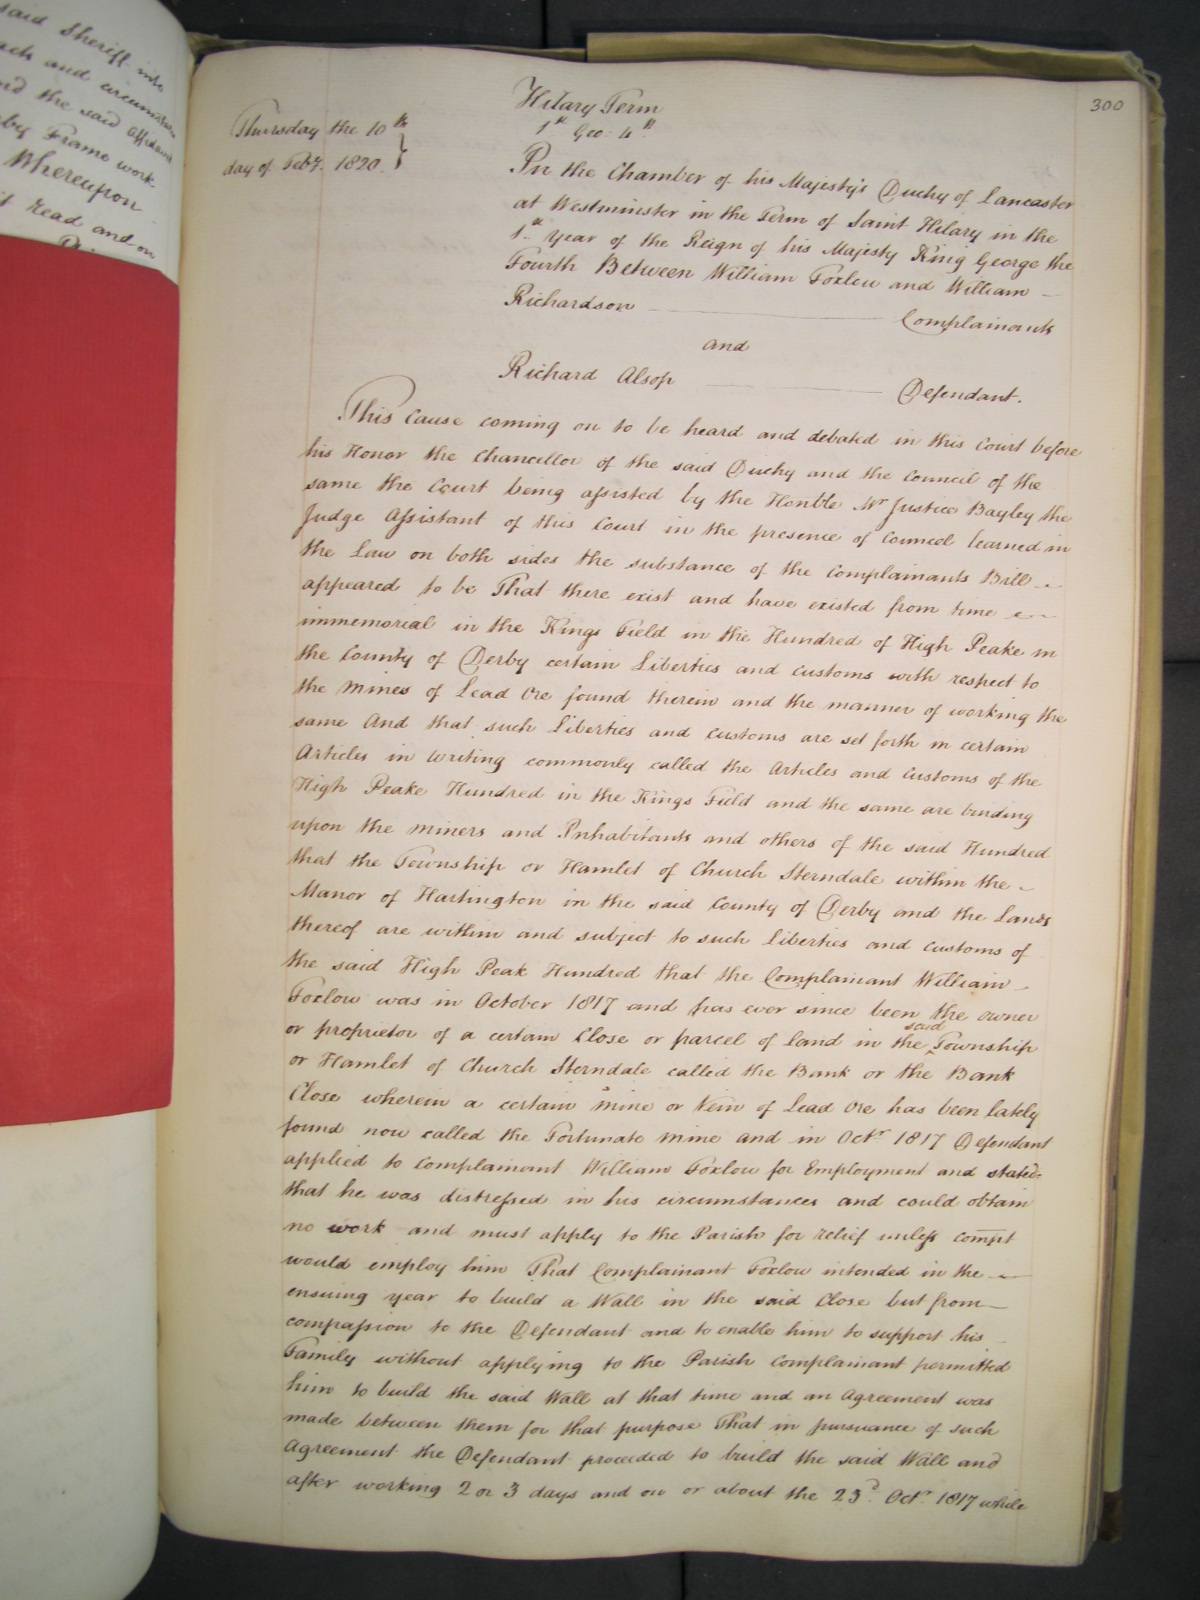 said Sheriff into
and circumstances
the said affidavit
by Frame work-
Whereupon
read and on
300
Hilary Term
1st Geo: 4th
Thursday the 10th
day of Feby. 1820.
In the Chamber of his Majesty's Duchy of Lancaster
at Westminster in the Term of Saint Hilary in the
1st Year of the Reign of his Majesty King George the
Fourth Between William Foxlow and William
Richardson Complainants
and
Richard Alsop Defendant.
This Cause coming on to be heard and debated in this Court before
his Honor the Chancellor of the said Duchy and the Council of the
same the Court being assisted by the Honble Mr Justice Bayley the
Judge Assistant of this Court in the presence of Councel learned in
the Law on both sides the substance of the Complainants Bill
appeared to be That there exist and have existed from time
immemorial in the Kings Field in the Hundred of High Peake in
the County of Derby certain Liberties and customs with respect to
the Mines of Lead Ore found therein and the manner of working the
same And that such Liberties and customs are set forth in certain
Articles in writing commonly called the Articles and Customs of the
High Peake Hundred in the Kings Field and the same are binding
upon the miners and Inhabitants and others of the said Hundred
that the Township or Hamlet of Church Sterndale within the
Manor of Hartington in the said County of Derby and the Lands
thereof are within and subject to such Liberties and customs of
the said High Peak Hundred that the Complainant William
Foxlow was in October 1817 and has ever since been the owner
or proprietor of a certain Close or parcel of Land in the said Township
or Hamlet of Church Sterndale called the Bank or the Bank
Close wherein a certain mine or Vein of Lead Ore has been lately
found now called the Fortunate Mine and in Octr 1817 Defendant
applied to Complainant William Foxlow for Employment and stated
that he was distressed in his circumstances and could obtain
no work and must apply to the Parish for relief unless compt
would employ him That Complainant Foxlow intended in the
ensuing year to build a Wall in the said Close but from
compassion to the Defendant and to enable him to support his
Family without applying to the Parish Complainant permitted
him to build the said Wall at that time and an Agreement was
made between them for that purpose That in pursuance of such
Agreement the Defendant proceeded to build the said Wall and
after working 2 or 3 days and on or about the 23d. Octr. 1817 while